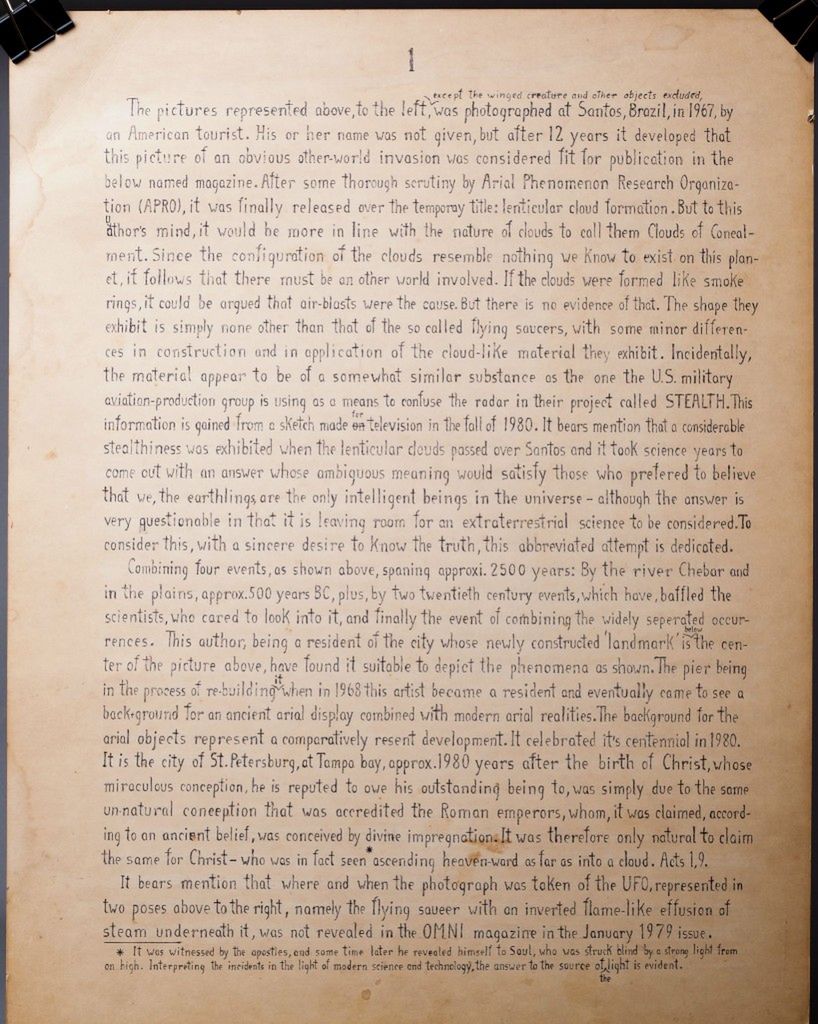 1
except the winged creature and other objects excluded,
The pictures represented above, to the left, was photographed at Santos, Brazil, in 1967, by
an American tourist. His or her name was not given, but after 12 years it developed that
this picture of an obvious other-world invasion was considered fit for publication in the
below named magazine. After some thorough scrutiny by Arial Phenomenon Research Organiza-
tion (APRO), it was finally released over the temporay title: lenticular cloud formation. But to this
u
athor's mind, it would be more in line with the nature of clouds to call them Clouds of Conceal-
ment. Since the configuration of the clouds resemble nothing we know to exist on this plan-
et, it follows that there must be an other world involved. If the clouds were formed like smoke
rings, it could be argued that air-blasts were the cause. But there is no evidence of that. The shape they
exhibit is simply none other than that of the so called flying saucers, with some minor differen-
ces in construction and in application of the cloud-like material they exhibit. Incidentally,
the material appear to be of a somewhat similar substance as the one the U.S. military
aviation-production group is using as a means to confuse the radar in their project called STEALTH. This
for
information is gained from a sketch made on television in the fall of 1980. It bears mention that a considerable
stealthiness was exhibited when the lenticular clouds passed over Santos and it took science years to
come out with an answer whose ambiguous meaning would satisfy those who prefered to believe
that we, the earthlings, are the only intelligent beings in the universe - although the answer is
very questionable in that it is leaving room for an extraterrestrial science to be considered. To
consider this, with a sincere desire to know the truth, this abbreviated attempt is dedicated.
Combining four events, as shown above, spaning approxi. 2500 years: By the river Chebar and
in the plains, approx. 500 years BC, plus, by two twentieth century events, which have, baffled the
scientists, who cared to look into it, and finally the event of combining the widely seperated occur-
below
rences. This author, being a resident of the city whose newly constructed 'landmark' is the cen-
ter of the picture above, have found it suitable to depict the phenomena as shown. The pier being
it
in the process of re-building when in 1968 this artist became a resident and eventually came to see a
back-ground for an ancient arial display combined with modern arial realities. The background for the
arial objects represent a comparatively resent development. It celebrated it's centennial in 1980.
It is the city of St. Petersburg, at Tampa bay, approx. 1980 years after the birth of Christ, whose
miraculous conception, he is reputed to owe his outstanding being to, was simply due to the same
un-natural conception that was accredited the Roman emperors, whom, it was claimed, accord-
ing to an ancient belief, was conceived by divine impregnation. It was therefore only natural to claim
the same for Christ - who was in fact seen *ascending heaven-ward as far as into a cloud. Acts 1,9.
It bears mention that where and when the photograph was taken of the UFO, represented in
two poses above to the right, namely the flying saucer with an inverted flame-like effusion of
steam underneath it, was not revealed in the OMNI magazine in the January 1979 issue.
* It was witnessed by the apostles, and some time later he revealed himself to Saul, who was struck blind by a strong light from
on high. Interpreting the incidents in the light of modern science and technology, the answer to the source of light is evident.
the